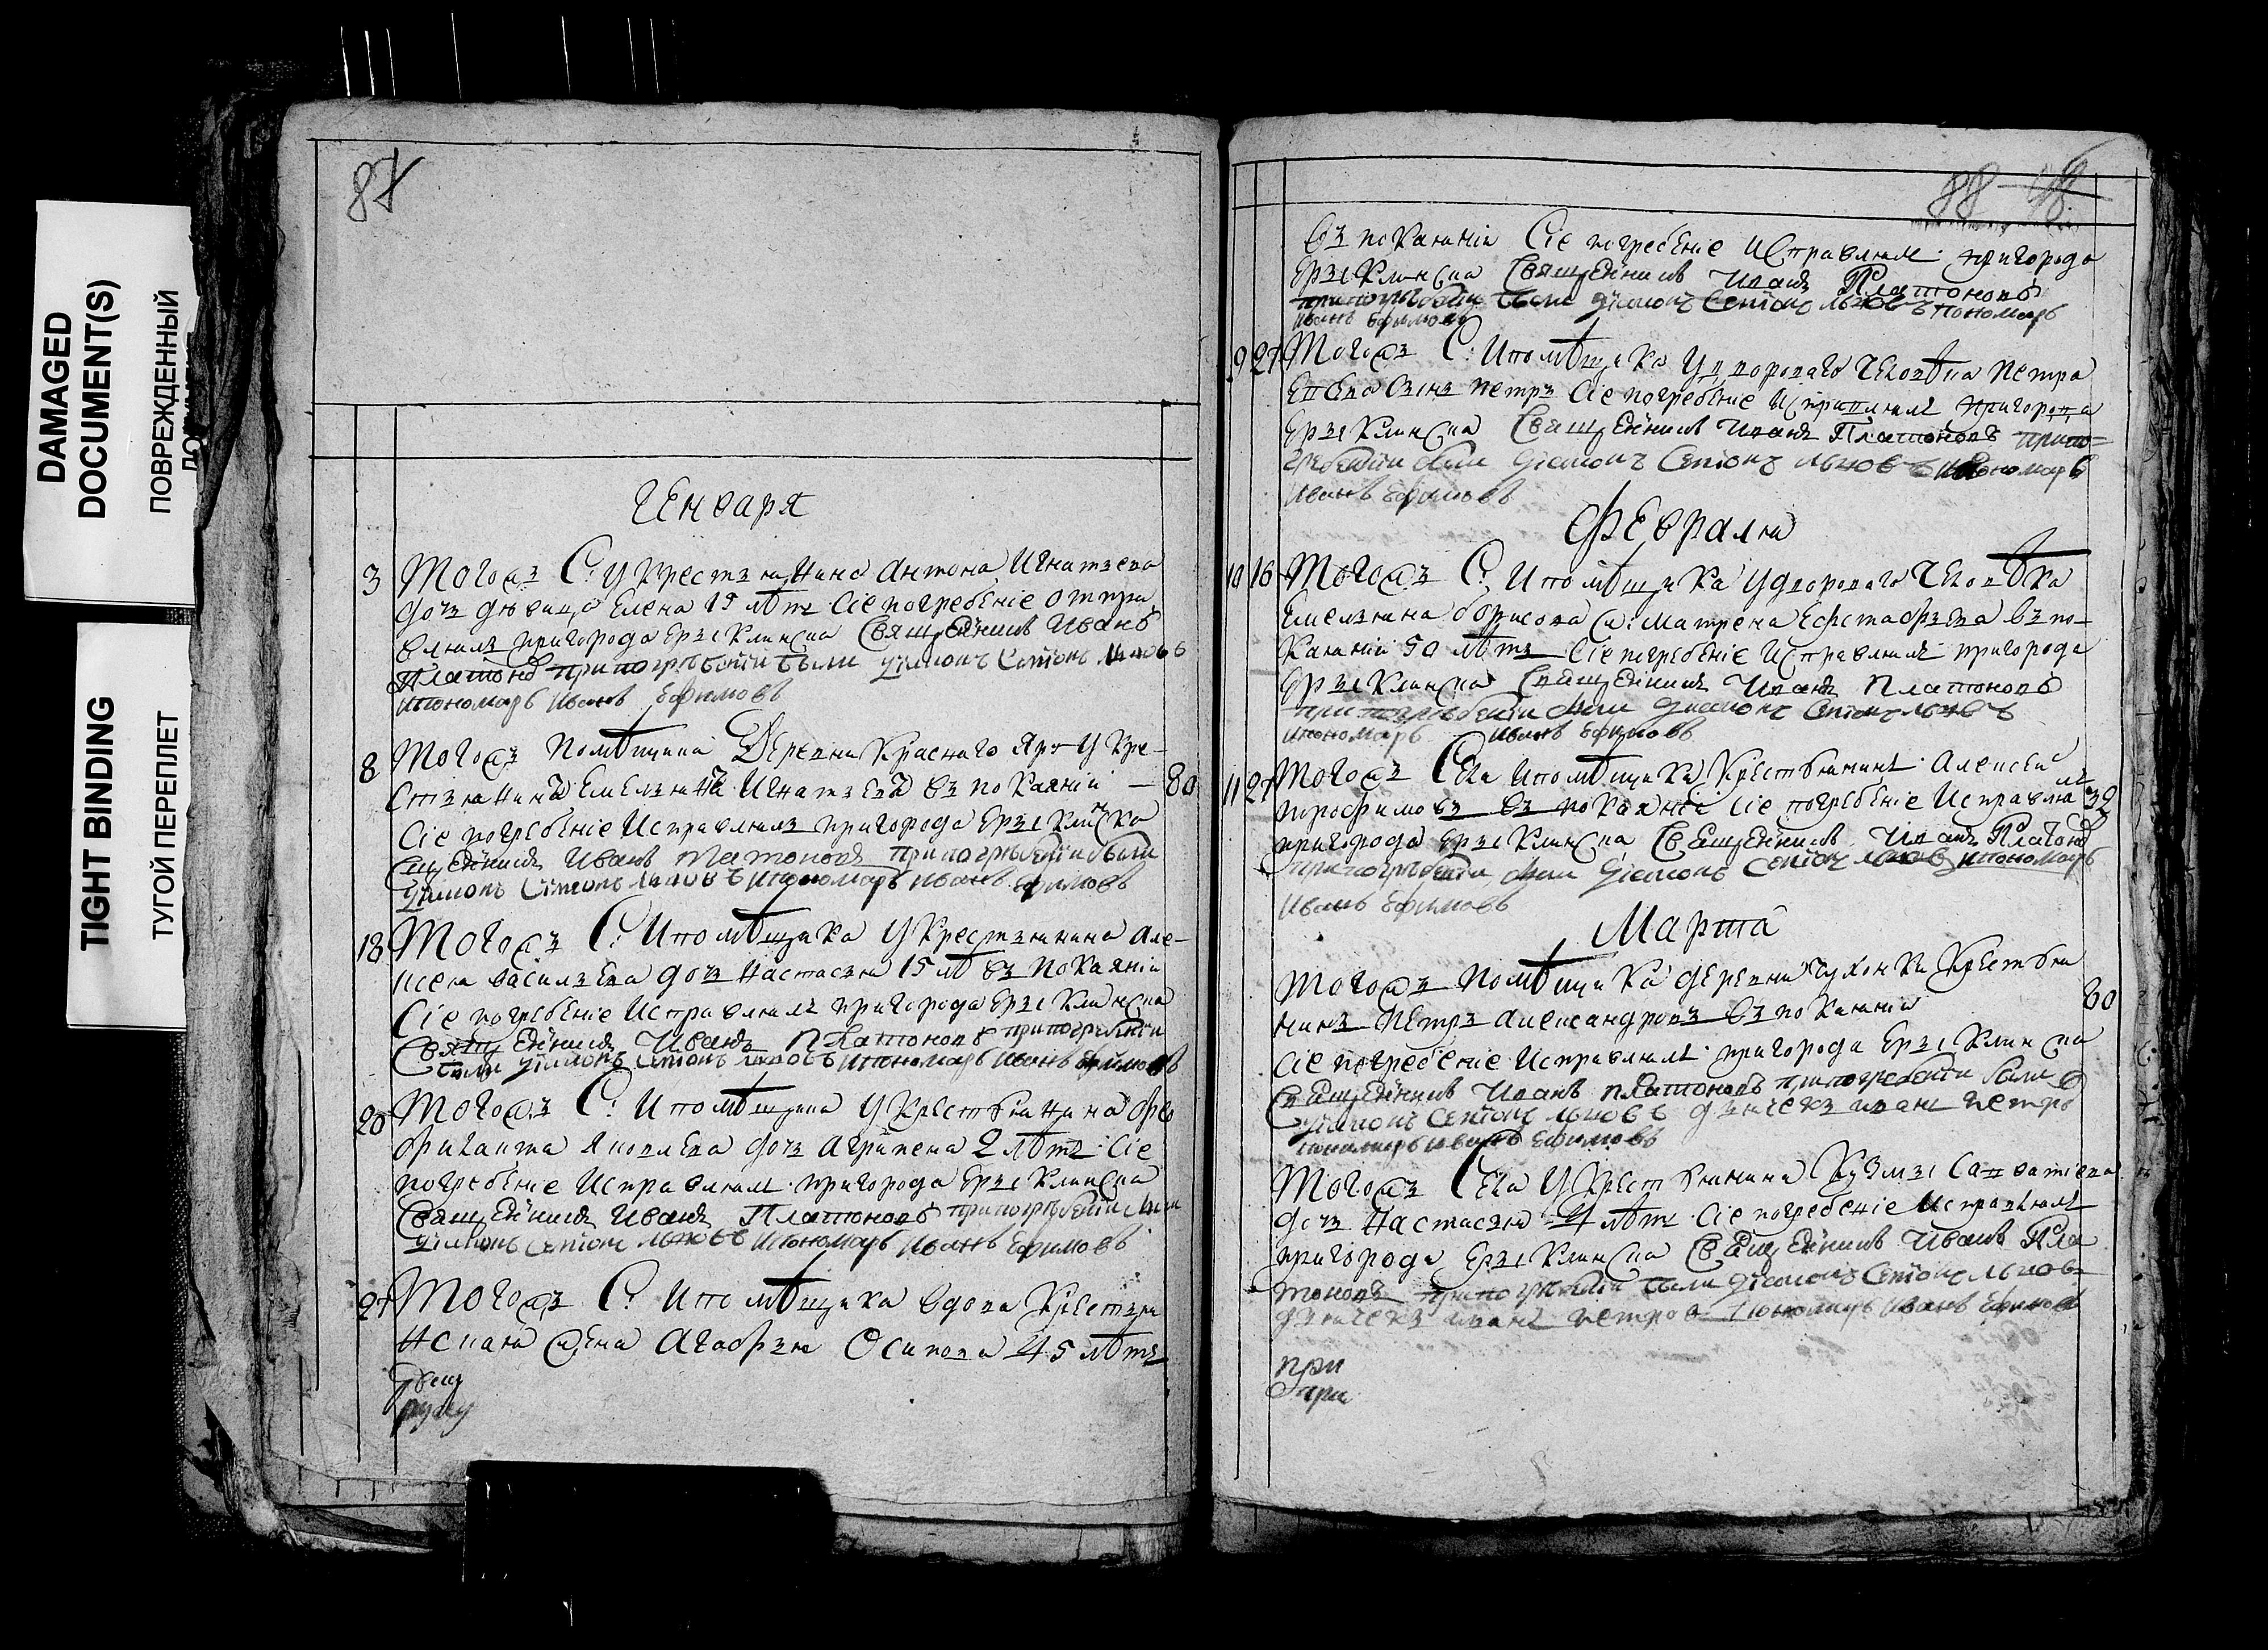 DAMAGED
DOCUMENT(S)
ПОВРЕЖДЕННЫЙ
TIGHT BINDING
ТУГОЙ ПЕРЕПЛЕТ
87
Генваря
3 Тогожъ С: у крестьянина Антона Игнатьева
дочь девица Елена 15 лѣтъ Сіе погребеніе отпра
влялъ пригорода Ерыклинска Священникъ Иванъ
Платоновъ при погребеніи были діяконъ Антонъ Львовъ
и пономарь Иванъ Ефимовъ
8 Тогожъ помѣщика Деревни Красного Яру у кре-
стьянина Емельяна Игнатьева въ покаяніи — 80
Сіе погребеніе исправлялъ пригорода Ерыклинска
Священникъ Иванъ Платоновъ при погребеніи были
діяконъ Львовъ и пономарь Иванъ Ефимовъ
18 Тогожъ С: и помѣщика у крестьянина Але-
ксея Васильева дочь Настасья 15 лѣ въ покаяніи
Сіе погребеніе исправлялъ пригорода Ерыклинска
Священникъ Иванъ Платоновъ при погребеніи
были діяконъ Львовъ и пономарь Иванъ Ефимовъ
20 Тогожъ С: и помѣщика у крестьянина
Яковлева дочь Агрипена 2 лѣтъ Сіе
погребеніе исправлялъ пригорода Ерыклинска
Священникъ Иванъ Платоновъ при погребеніи были
діяконъ Львовъ и пономарь Иванъ Ефимовъ
27 Тогожъ С: и помѣщика вдова крестья
нская жена Агафья Осипова 45 лѣтъ
руку
88
въ покаяніи Сіе погребеніе исправлялъ пригорода
Ерыклинска Священникъ Иванъ Платоновъ
при погребеніи были діяконъ Львовъ пономарь
Иванъ Ефимовъ
9 27 Тогожъ С: и помѣщика у двороваго человѣка Петра
сынъ Петръ Сіе погребеніе исправлялъ пригорода
Ерыклинска Священникъ Иванъ Платоновъ при по=
гребеніи были діяконъ Львовъ и пономарь
Иванъ Ефимовъ
Февраля
10 16 Тогожъ С: и помѣщика у двороваго человѣка
Емельяна Борисова Матрена Ефстафьева въ по-
каяніи 50 лѣтъ Сіе погребеніе исправлялъ пригорода
Ерыклинска Священникъ Иванъ Платоновъ
при погребеніи были діяконъ Львовъ
и пономарь Иванъ Ефимовъ
11 27 Тогожъ Села и помѣщика крестьянинъ Алексей
Трофимовъ въ покаяніи Сіе погребеніе исправлялъ 32
пригорода Ерыклинска Священникъ Иванъ Платоно
при погребеніи были діяконъ Львовъ и пономарь
Иванъ Ефимовъ
Марта
Тогожъ помѣщика деревни крестья
нинъ Петръ Александровъ въ покаяніи 60
Сіе погребеніе исправлялъ пригорода Ерыклинска
Священникъ Иванъ Платоновъ при погребеніи были
діяконъ Львовъ дьячекъ Иванъ Петро
пономарь Иванъ Ефимовъ
Тогожъ Села у крестьянина Кузмы Савватіева
дочь Настасья 4 лѣтъ Сіе погребеніе исправлялъ
пригорода Ерыклинска Священникъ Иванъ Пла
тоновъ при погребеніи были діяконъ Львовъ
дьячекъ Иванъ Петров пономарь Иванъ Ефимов
при
при